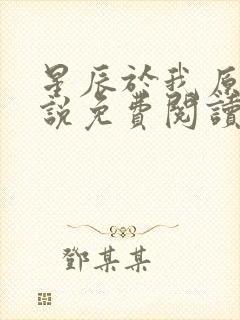 星辰於我原
說免費閱讀
鄧某某